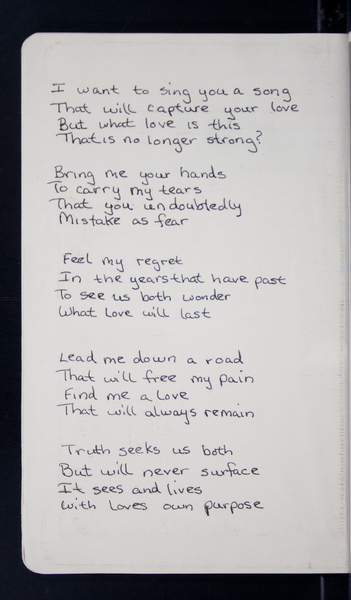 I want to sing you a song
That will capture your love
But what love is this
That is no longer strong?
Bring me your hands
To carry my tears
That you undoubtedly
Mistake as fear
Feel my regret
In the years that have past
To see us both wonder
What Love will last
Lead me down a road
That will free my pain
Find me a Love
That will always remain
Truth seeks us both
But will never surface
It sees and lives
With Loves own purpose